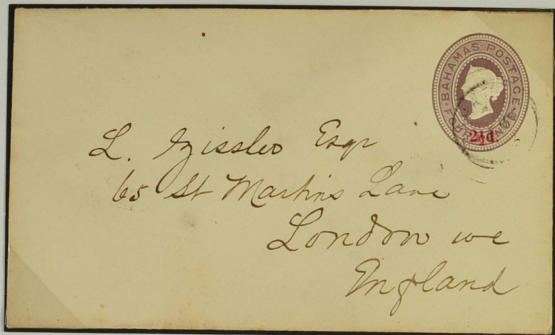 BAHAMAS POSTAGE
2½d
L. Gissler Esqr
65 St Martins Lane
London wc
England